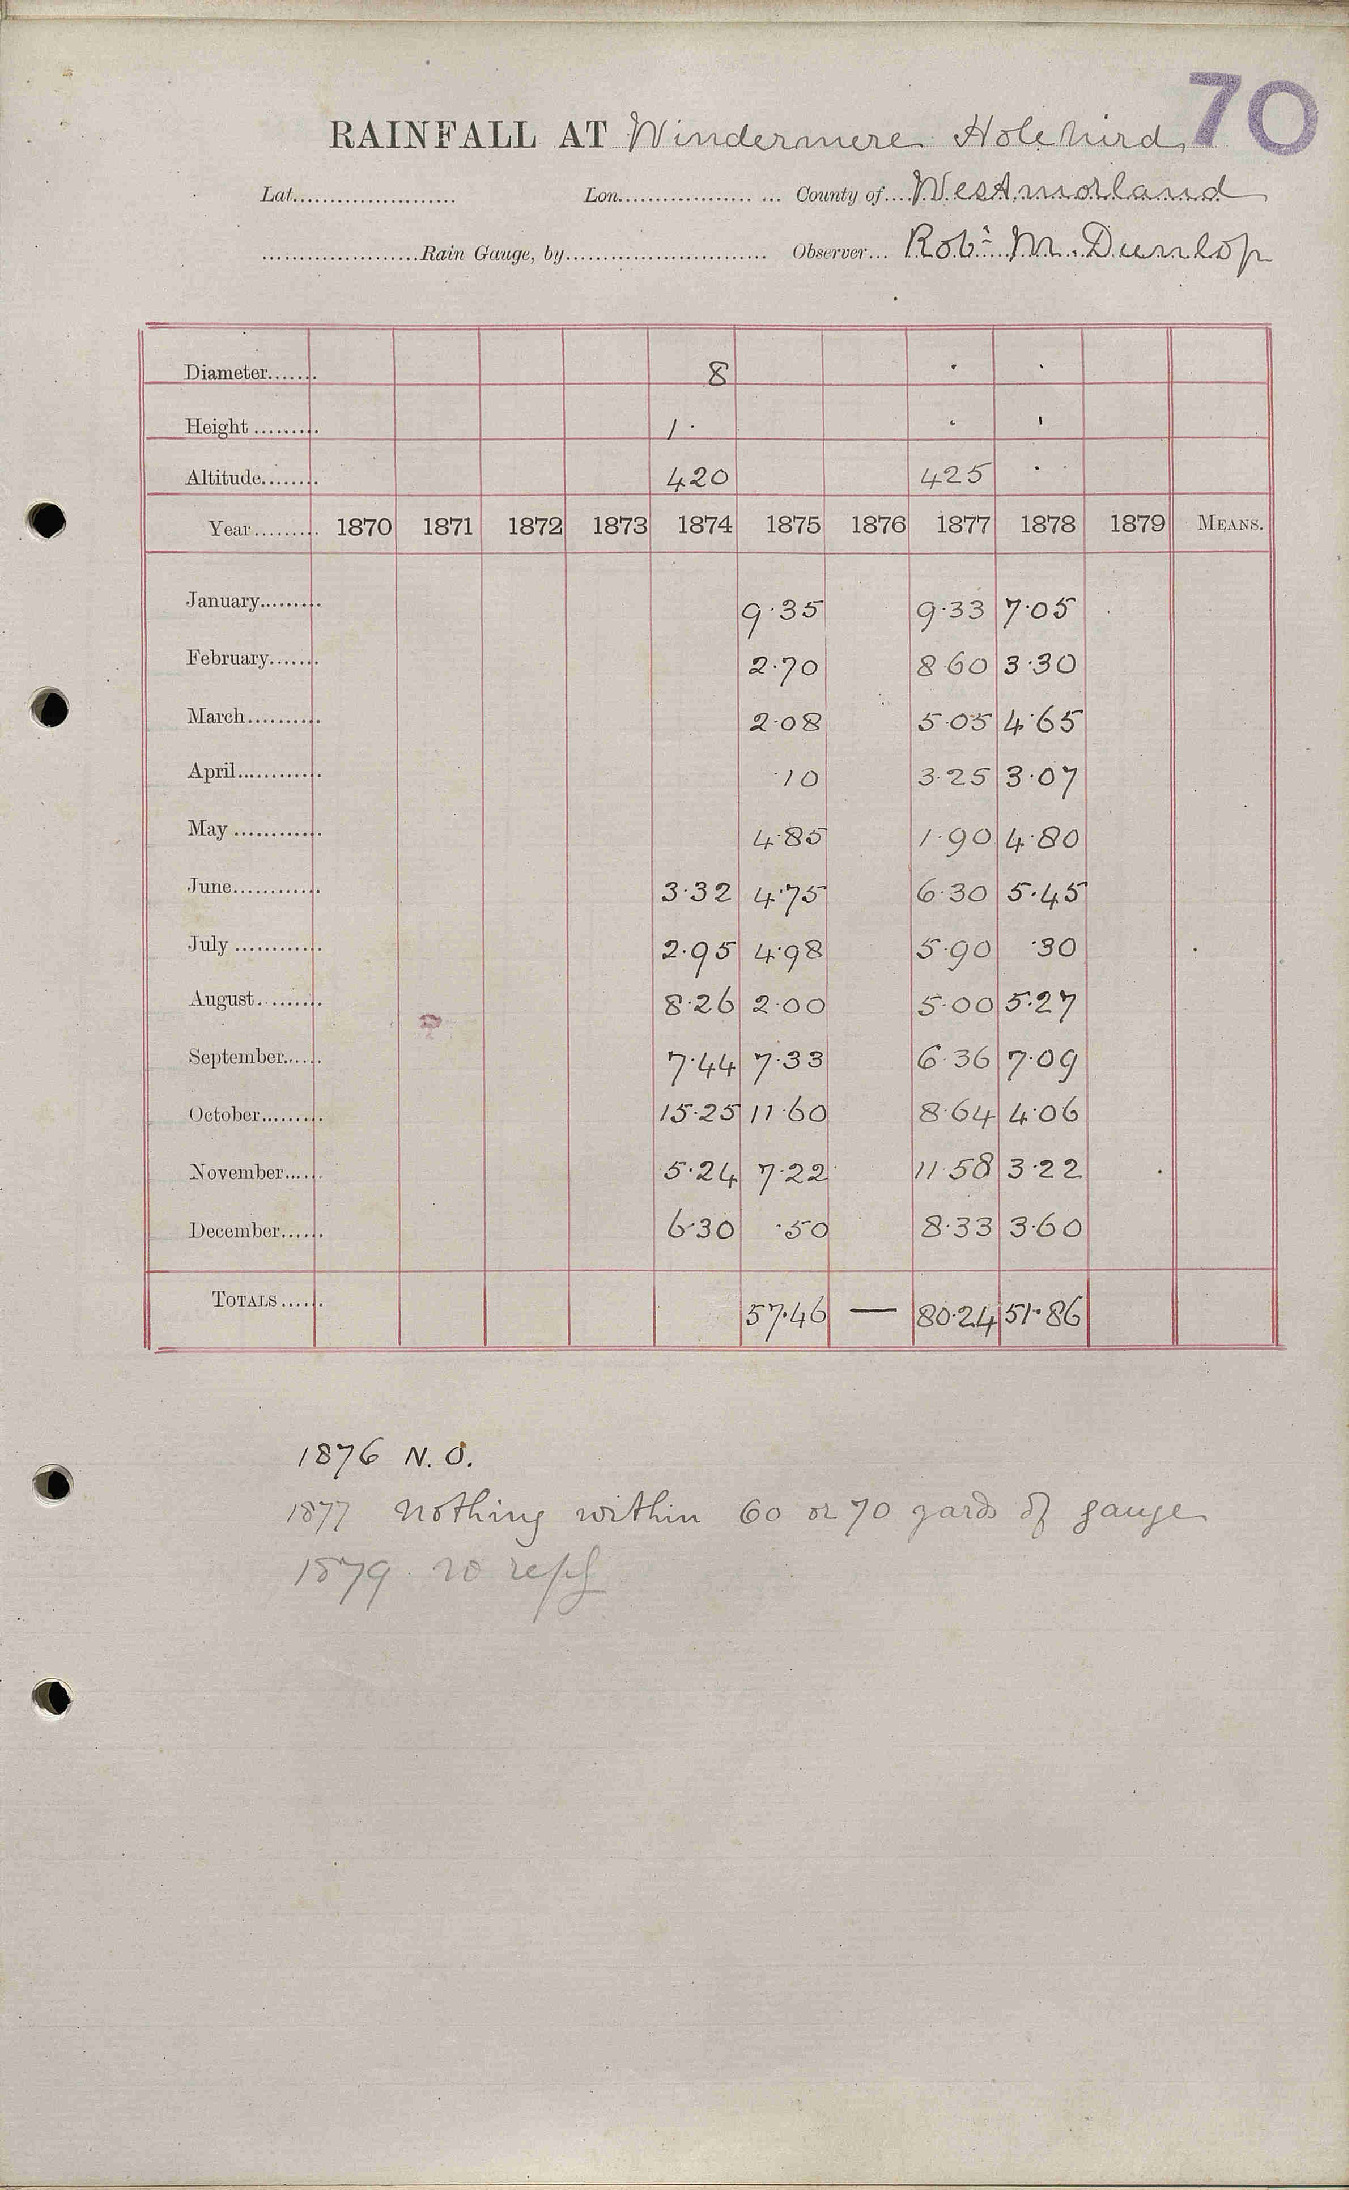 70
RAINFALL AT Windermere Holehird
Lat...................... Lon.................. ... County of....Westmorland
......................Rain Gauge, by........................... Observer... Robt M. Dunlop
Diameter....... 8 · ·
Height ......... 1· · '
Altitude........ 420 425 ·
Year......... 1870 1871 1872 1873 1874 1875 1876 1877 1878 1879 MEANS.
January......... 9·35 9·33 7·05
February....... 2·70 8·60 3·30
March.......... 2·08 5·05 4·65
April............ ·10 3·25 3·07
May ............ 4·85 1·90 4·80
June............ 3·32 4·75 6·30 5·45
July ............ 2·95 4·98 5·90 ·30
August......... 8·26 2·00 5·00 5·27
September...... 7·44 7·33 6·36 7·09
October......... 15·25 11·60 8·64 4·06
November...... 5·24 7·22 11·58 3·22
December...... 6·30 ·50 8·33 3·60
TOTALS ...... 57·46 — 80·24 51·86
1876 N. O.
1877 Nothing within 60 or 70 yards of gauge
1879 no reply